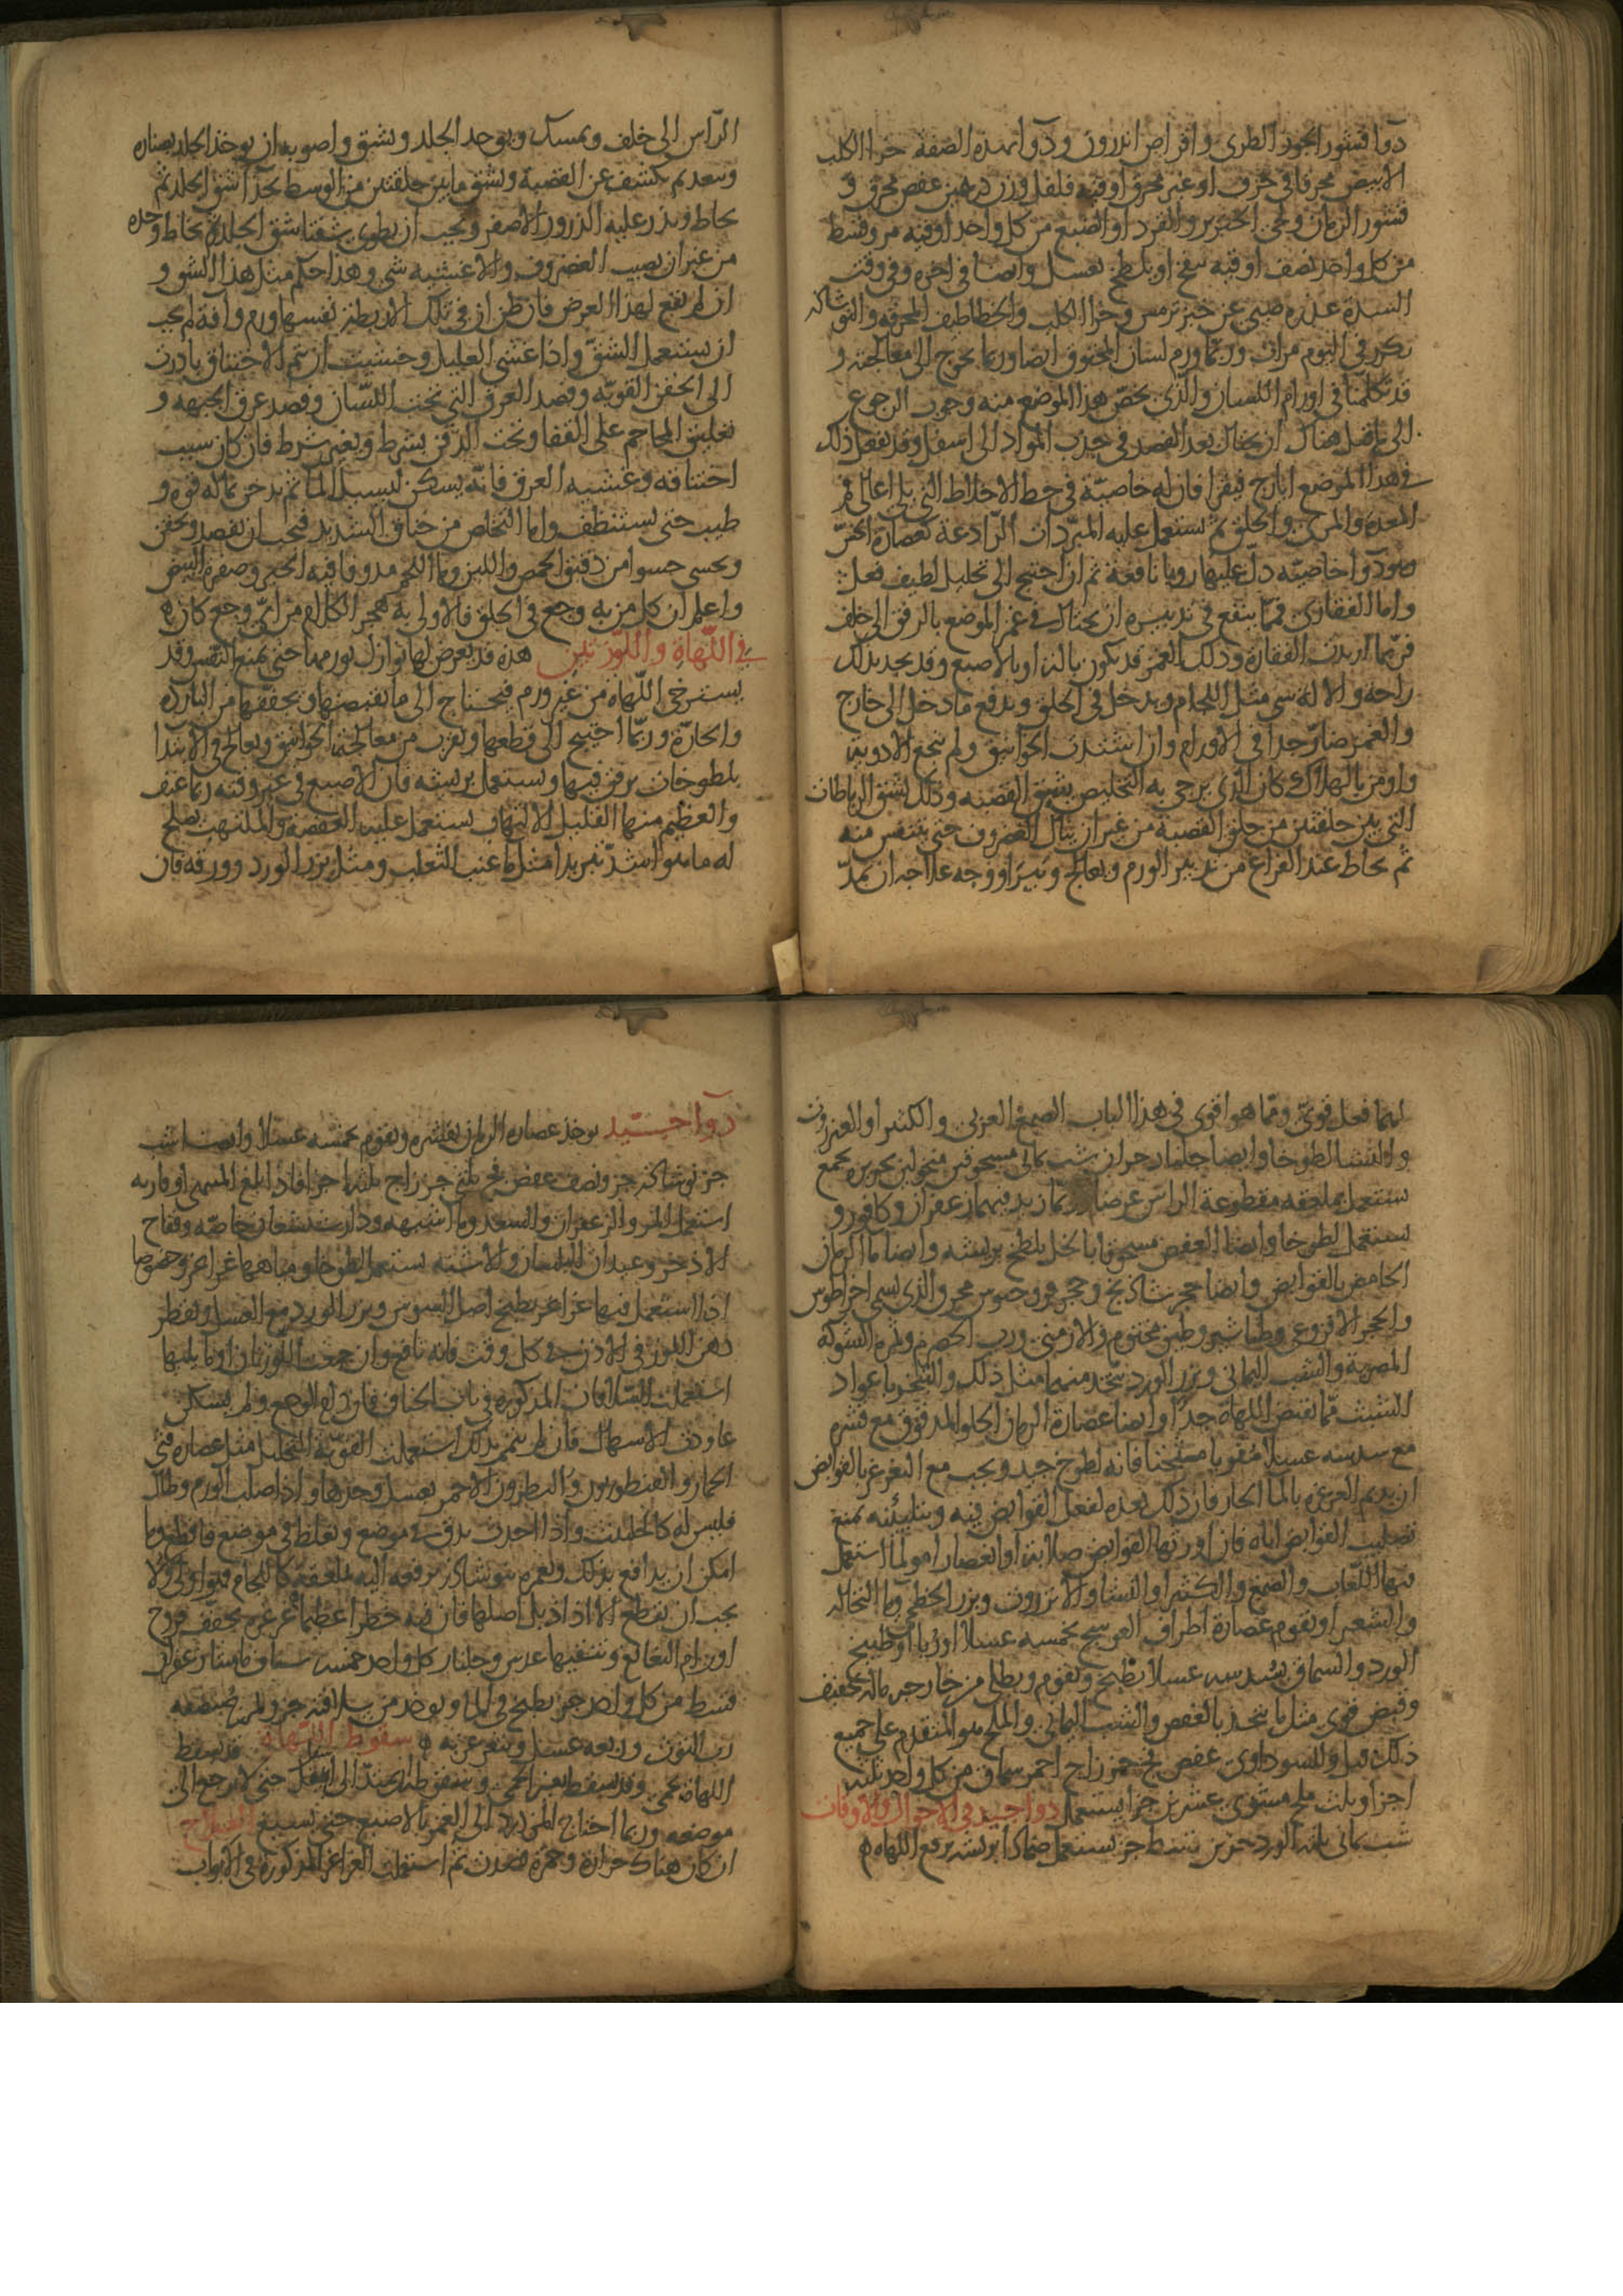 دوا قشور الجوز الطرى واقراص اندرون ودوا بهذه الصفة خرا الكلب
الابيض محرقا فى خزف او غير محرق اوقيه فلفل وزن درهمين عفص محرق و
قشور الرمان ولحى الخنزير والقرد او الضبع من كل واحد اوقيه مر وقسط
من كل واحد نصف اوقيه ينفخ او يلطخ بعسل وايضا فى اخره وفى وقت
الشدة عذره صبى عن خبز ترمس وخرا الكلب والخطاطيف المحرقه والنوشادر
تكرر فى اليوم مرات وربما ورم لسان المخنوق ايضا وربما يخرج الى معالجته و
قد تكلمنا فى اورام اللسان والذى يخص هذا الموضع منه وجوب الرجوع
الى ما قيل هناك ان يحتال بعد الفصد فى جذب المواد الى اسفل وقد يفعل ذلك
فى هذا الموضع ايارج فيقرا فان له خاصيّة فى حط الاخلاط التى يلى اعالى فم
المعدة والمرى والحلق ثم تستعمل عليه المبردات الرّادعة كعصارة الخس
وهو دوا خاصيته دل عليها رويا نافعة ثم ان احتيج الى تحليل لطيف فعل
واما الفقارى فمما ينفع فى تدبيره ان يحتال فى غمز الموضع بالرفق الى خلف
فربما ارتدت الفقارة وذلك الغمز قد يكون بالة او بالاصبع وقد يجد بذلك
راحه والالة شى مثل اللجام يدخل فى الحلق ويدفع ما دخل الى خارج
والغمز ضارّ جدا فى الاورام وان اشتدت الخوانيق ولم تنجع الادوية
واومن بالهلاك كان الذى يرجى به التخليص شق القصبه وذلك بشق الرباطات
التى بين حلقتين من حلق القصبة من غير ان ينال الغضروف حتى يتنفس منه
ثم يخاط عند الفراغ من تدبير الورم ويعالج ويبرا ووجه علاجه ان يمد
الرّاس الى خلف ويمسك ويوخذ الجلد ويشق واصوبه ان يوخذ الجلد بصناره
ويبعد ثم يكشف عن القصبة ويشق ما بين حلقتين من الوسط بحذا شق الجلد ثم
يخاط ويذر عليه الذرور الاصفر ويجب ان تطوى شفتا شق الجلد ثم يخاط وحده
من غير ان يصيب الغضروف والاغشيه شى وهذا حكم مثل هذا الشق و
ان لم يقع لهذا الغرض فان ظن ان فى تلك الاربطة نفسها ورم وافة لم يجب
ان يستعمل الشقّ واذا غشى العليل وخشيت ان يتم الاختناق بادرت
الى الحقن القوية وفصد العرق التى تحت اللسان وفصد عرق الجبهه و
تعليق المحاجم على القفا وتحت الذقن بشرط وبغير شرط فان كان سبب
اختناقه وغشيه الغرق فانه يسكن ليسيل الما ثم يدخن بما له قوه و
طيب حتى يستنظف واما التخلص من خناق الشديد فيجب ان يفصد ويحقن
ويحسى حسوا من دقيق الحمص واللبن وما اللحم مدوفا فيه الخبز وصفرة البيض
واعلم ان كل من به وجع فى الحلق فالاولى به هجر الكلام من اىّ وجع كان
فى اللّهاة واللّوزتين هذه قد يعرض لها نوازل تورمها حتى يمنع النفس وقد
يسترخى اللّهاة من غير ورم فيحتاج الى ما يقبضها ويجففها من الباردة
والحارّة وربّما احتيج الى قطعها ويقرب من معالجة الخوانيق ويعالج فى الابتدا
بلطوخات يرفق فيها ويستعمل بريشه فان الاصبع فى غير وقته ربما عنف
والعظيم منها القليل الالتهاب يستعمل عليه العفصة والملتهب يصلح
له ما هو اشدّ تبريدا مثل ما عنب الثعلب ومثل بزر الورد وورقه فان
لهما فعل قوىّ ومما هو اقوى فى هذا الباب الصمغ العربى والكثيرا والعنزروت
والنشا لطوخا وايضا جلنار جزان شب يمانى مسحوقين منخولين بحريره يجمع
يستعمل بملعقه مقطوعة الراس عرضا وربما زيد فيهما زعفران وكافور و
يستعمل لطوخا وايضا العفص مسحوقا بالخل يلطخ بريشه وايضا ما الرمان
الحامض بالقوابض وايضا حجر شاذنج وحجر محرق والذى يسمى اخراطوس
والحجر الافروغى وطباشير وطين مختوم والارمنى ورب الحصرم وثمرة الشوكة
المصرية والشب اليمانى وبزر الورد يتخذ منهما مثل ذلك والتبخير باعواد
الشبث مما يقبض اللهاة جدا وايضا عصارة الرمان الحلو المدقوق مع قشره
مع سدسه عسلا مقوما مثخنا فانه لطوخ جيد ويجب مع التغرغر بالقوابض
ان يديم الغرغره بالما الحار فان ذلك يعده لفعل القوابض فيه وبتليينه يمنع
تصليب القوابض اياه فان اورثها القوابض صلابة او انعصارا مولما استعمل
فيها اللّعاب والصمغ والكثيرا والنشا والانزروت وبزر الخطمى وما النخالة
والشعير او يقوم عصارة اطراف العوسج بخمسه عسلا او ربا او طبيخ
الورد والسماق بسدسه عسلا يطبخ ويقوم ويطلى من خارج بما له تجفيف
وقبض قوى مثل ما يتخذ بالعفص والشب اليمانى والملح هو المتقدم على جميع
ذلك وللسوداوى عفص فج جز زاج احمر سماق من كل واحد ثلثة
اجزا وثلث ملح مشوى عشرين جزا يستعمل دوا جيد فى الاحوال والاوقات
شب يمانى ثلثه الورد جزين قسط جز يستعمل ضمادا بريشه يرفع اللهاه
دوا جيّد يوخذ عصارة الرمان بقشره ويقوم بخمسه عسلا وايضا شب
جز نوشاذر جز ونصف عفص فج ثلثى جز زاج ثلثة اجزا فاذا بلغ المنتهى او قاربه
استعمل المر والزعفران والسعد وما اشبهه ودارشيشعان خاصّه وفقاح
الاذخر وعيدان البلسان والاشنه يستعمل لطوخا ومياهها غراغر وخصوصا
اذا استعمل فيها غراغر بطبيخ اصل السوس وبزر الورد مع العسل ويقطر
دهن اللوز فى الاذن فى كل وقت فانه نافع وان جمعت اللوزتان وما يليها
استعملت السّلاقات المذكوره فى باب الخناق فان دام الوجع ولم يسكن
عاودت الاسهال فان لم يتم بذلك استعملت القويّة التحليل مثل عصاره قثى
الحمار والقنطوريون والنطرون الاحمر بعسل وحدها واذا صلب الورم وطال
فليس له كالحلتيت واذا اخذت يدق فى موضع ويغلظ فى موضع فاقطع وما
امكن ان يدافع بذلك ويغمره بنوشادر يرفعه اليه بملعقه كاللجام فهو اولى ولا
يجب ان يقطع الا اذا ذبل اصلها فان فيه خطرا عظيما غرغره يجفف قروح
اورام النغانغ وتنقيها عدس وجلنار كل واحد خمسه شياف ماميثا زعفران
قسط من كل واحد جز يطبخ فى الما ويوخذ من سلافته جز ويمزج بنصفه
رب التوت وربعه عسل ويتغرغر به سقوط اللهاه قد يسقط
اللهاة بحمى وقد يسقط بغير الحمى وسقوطها ان يمتد الى اسفل حتى لا يرجع الى
موضعه وربما احتاج المزدرد الى الغمز بالاصبع حتى يسيغ العلاج
ان كان هناك حرارة وحمرة فصدت ثم استعملت الغراغر المذكورة فى الابواب